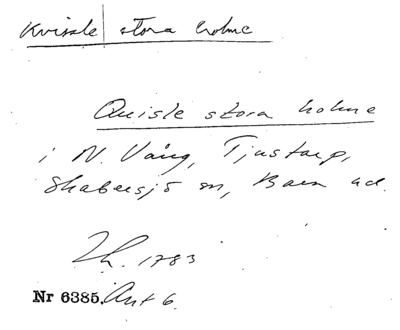 Kvissle | stora holme
Quisle stora holme
i N. Vång, Tjustorp,
Skabersjö sn, Bara hd.
Lh. 1783
Nr 6385. Ant 6.